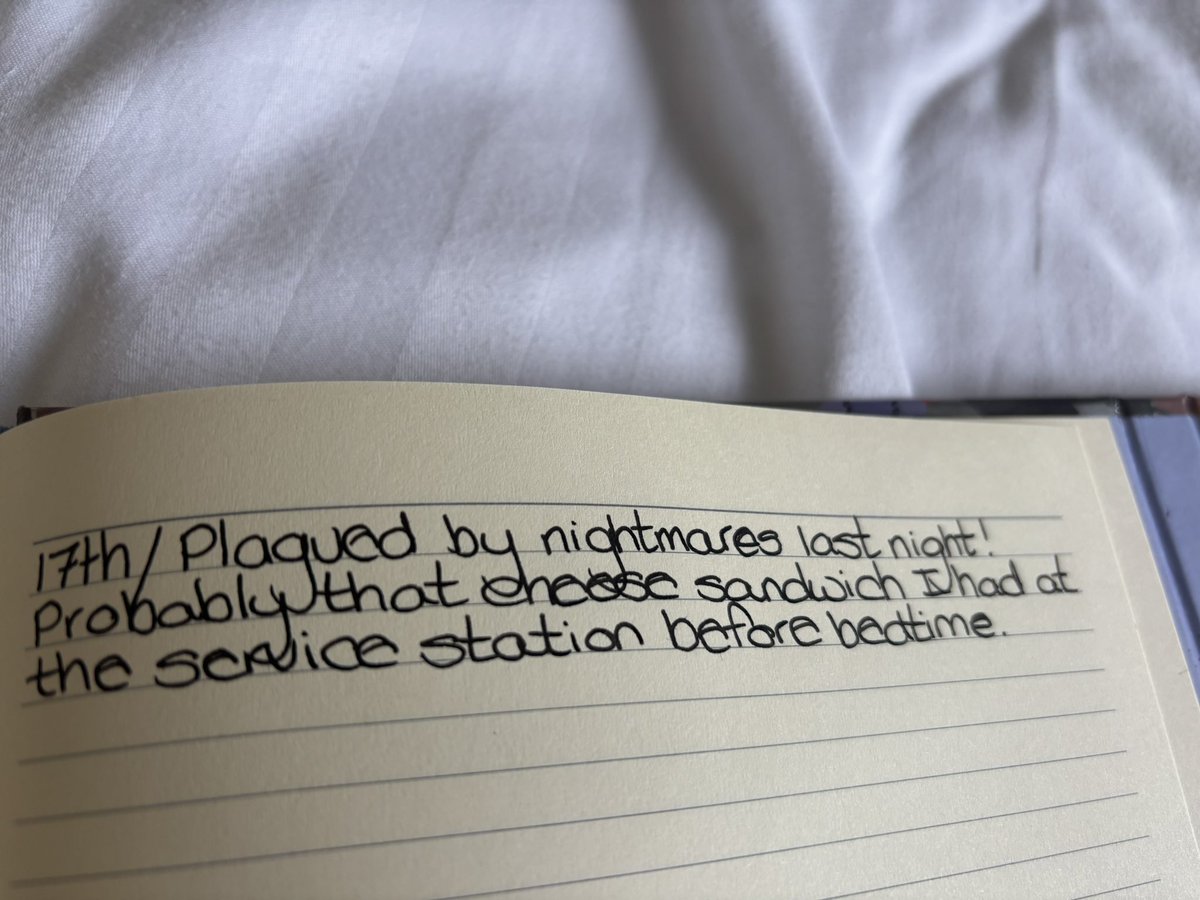 17th/ Plagued by nightmares last night!
Probably that cheese sandwich I had at
the service station before bedtime.